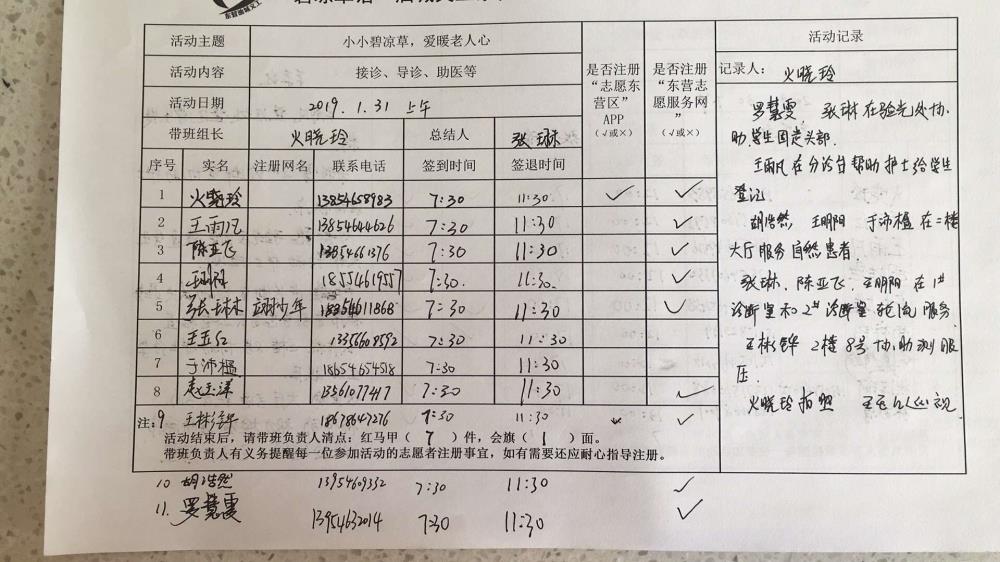 活动主题 小小碧凉草，爱暖老人心
活动内容 接诊、导诊、助医等
活动日期 2019.1.31 上午
带班组长 火晓玲 总结人 张琳
是否注册“志愿东营区”APP（√或×）
是否注册“东营志愿服务网”（√或×）
序号 实名 注册网名 联系电话 签到时间 签退时间
1 火晓玲 13854658983 7:30 11:30 ✓ ✓
2 王雨凡 13854644626 7:30 11:30 ✓
3 陈亚飞 13854661376 7:30 11:30 ✓
4 王明阳 18554619557 7:30 11:30 ✓
5 张琳 18354611868 7:30 11:30 ✓
6 王玉红 13356608592 7:30 11:30
7 于沛楹 18654654518 7:30 11:30
8 赵玉洋 13361077417 7:30 11:30 ✓
注：9 王林铧 18678647276 7:30 11:30 ✓
活动结束后，请带班负责人清点：红马甲（7）件，会旗（1）面。
带班负责人有义务提醒每一位参加活动的志愿者注册事宜，如有需要还应耐心指导注册。
10 胡浩然 13954609332 7:30 11:30 ✓
11. 罗慧雯 13954632014 7:30 11:30 ✓
活动记录
记录人：火晓玲
罗慧雯，张琳在验光处协
助学生固定头部.
王雨凡在分诊台帮助护士给学生
登记
胡浩然 王明阳 于沛楹在二楼
大厅服务自然患者.
张琳. 陈亚飞. 王明阳 在1#
诊断室和2#诊断室轮流服务.
王林铧 2楼8号协助测眼
压.
火晓玲拍照